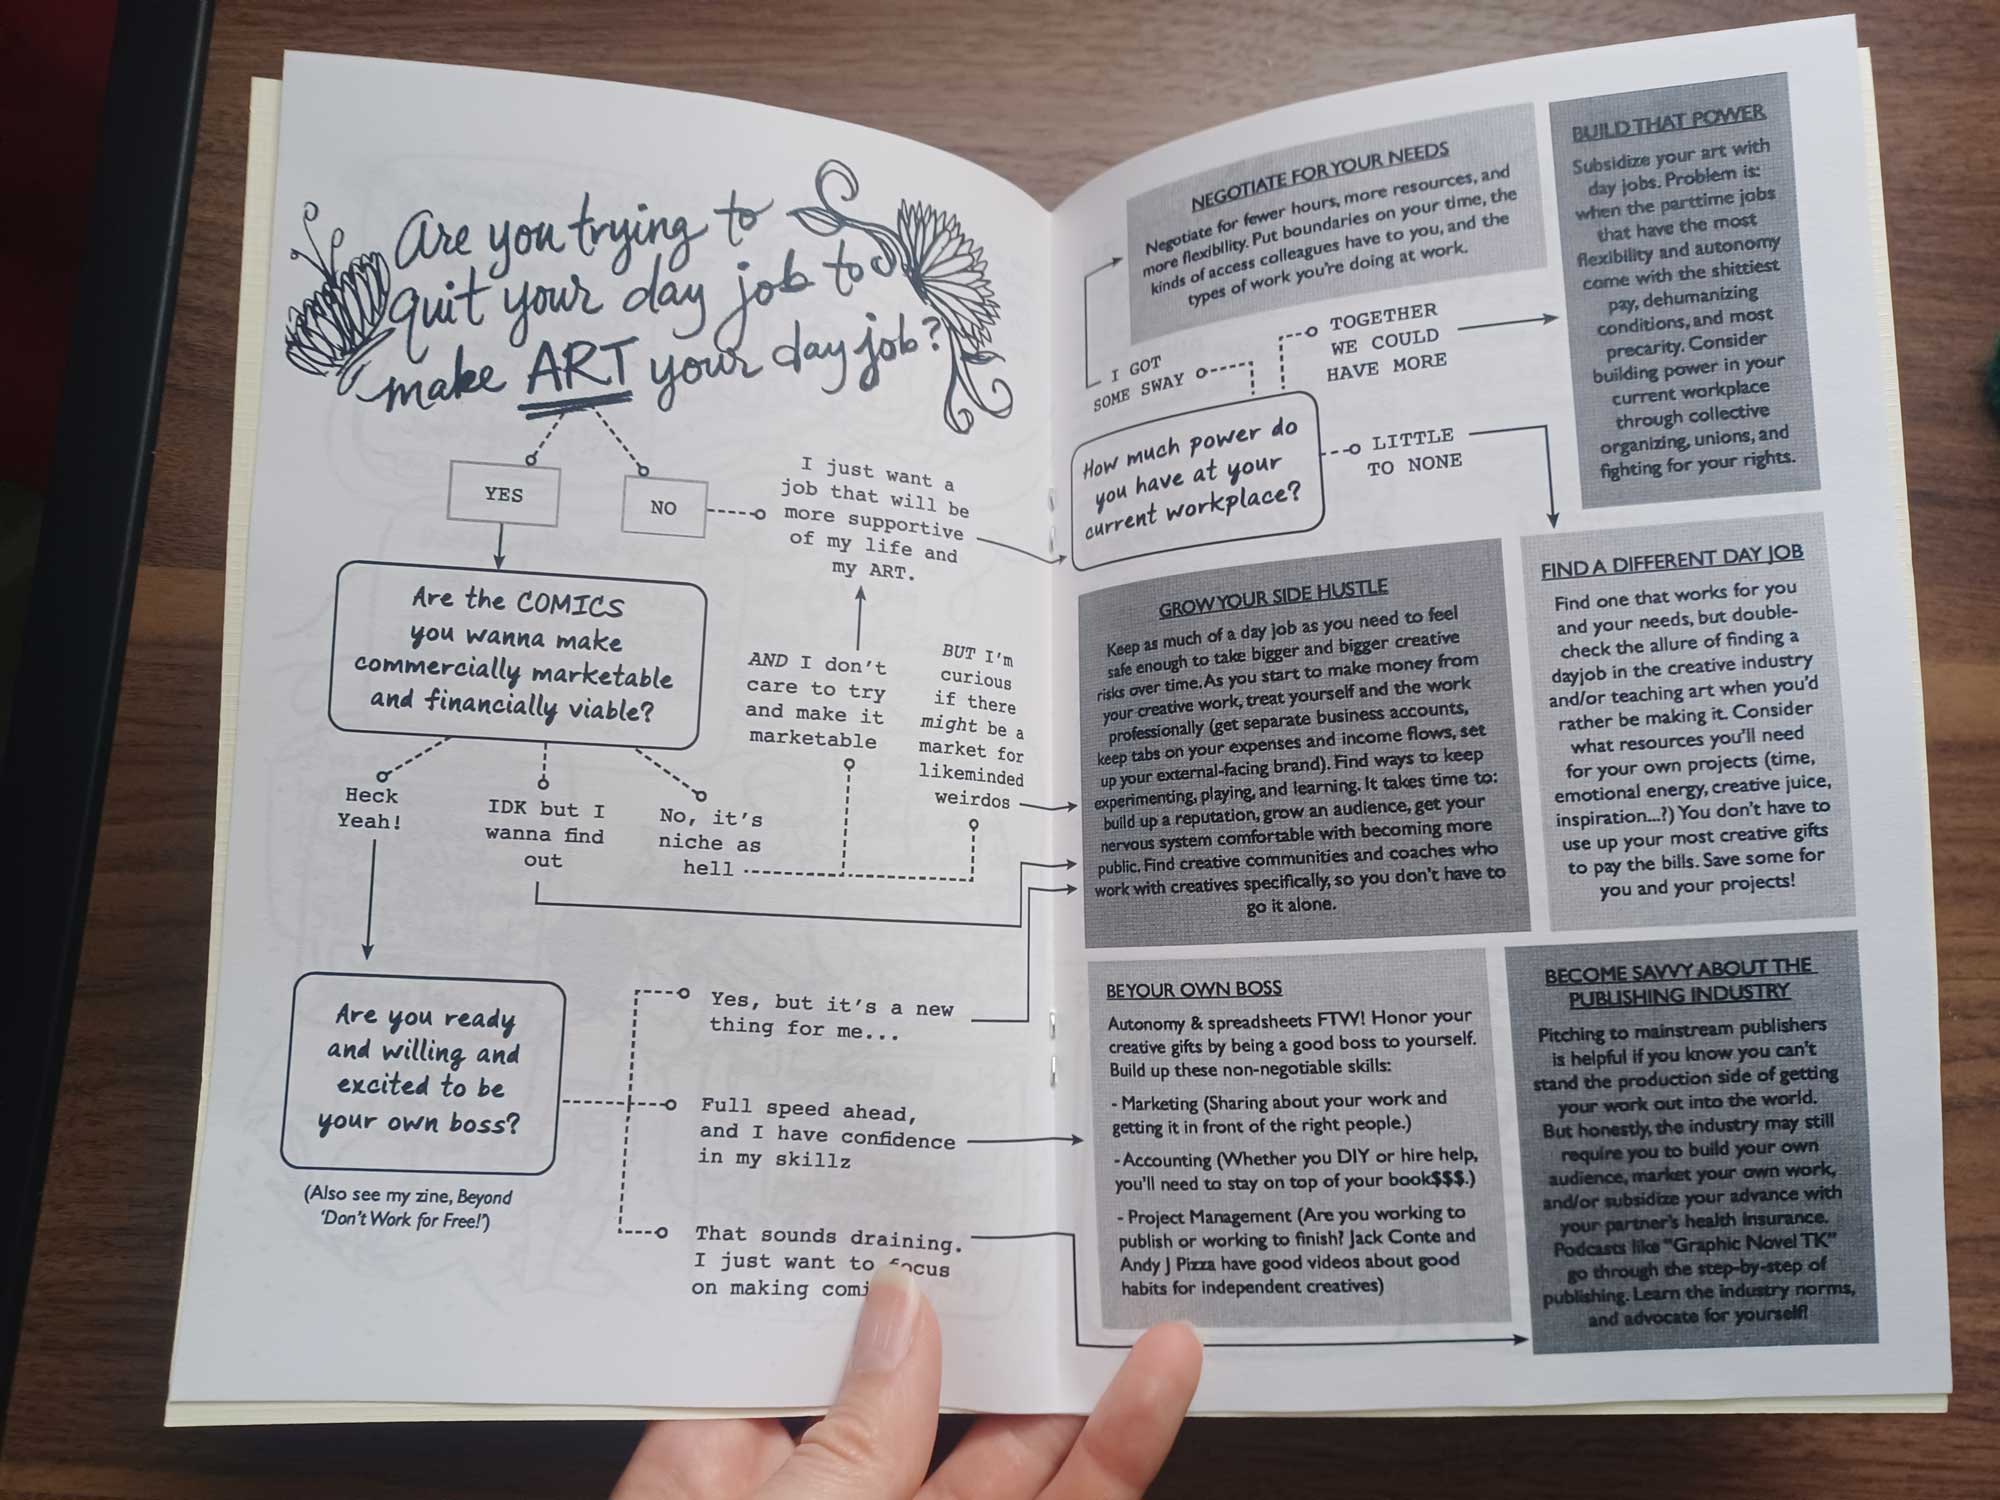 Are you trying to
quit your day job to
make ART your day job?
YES
NO
I just want a
job that will be
more supportive
of my life and
my ART.
Are the COMICS
you wanna make
commercially marketable
and financially viable?
AND I don't
care to try
and make it
marketable
BUT I'm
curious
if there
might be a
market for
likeminded
weirdos
Heck
Yeah!
IDK but I
wanna find
out
No, it's
niche as
hell
Are you ready
and willing and
excited to be
your own boss?
(Also see my zine, Beyond
'Don't Work for Free!')
Yes, but it's a new
thing for me...
Full speed ahead,
and I have confidence
in my skillz
That sounds draining.
I just want to focus
on making
NEGOTIATE FOR YOUR NEEDS
Negotiate for fewer hours, more resources, and
more flexibility. Put boundaries on your time, the
kinds of access colleagues have to you, and the
types of work you're doing at work.
I GOT
SOME SWAY
TOGETHER
WE COULD
HAVE MORE
How much power do
you have at your
current workplace?
LITTLE
TO NONE
BUILD THAT POWER
Subsidize your art with
day jobs. Problem is:
when the parttime jobs
that have the most
flexibility and autonomy
come with the shittiest
pay, dehumanizing
conditions, and most
precarity. Consider
building power in your
current workplace
through collective
organizing, unions, and
fighting for your rights.
GROW YOUR SIDE HUSTLE
Keep as much of a day job as you need to feel
safe enough to take bigger and bigger creative
risks over time. As you start to make money from
your creative work, treat yourself and the work
professionally (get separate business accounts,
keep tabs on your expenses and income flows, set
up your external-facing brand). Find ways to keep
experimenting, playing, and learning. It takes time to:
build up a reputation, grow an audience, get your
nervous system comfortable with becoming more
public. Find creative communities and coaches who
work with creatives specifically, so you don't have to
go it alone.
FIND A DIFFERENT DAY JOB
Find one that works for you
and your needs, but double-
check the allure of finding a
dayjob in the creative industry
and/or teaching art when you'd
rather be making it. Consider
what resources you'll need
for your own projects (time,
emotional energy, creative juice,
inspiration...?) You don't have to
use up your most creative gifts
to pay the bills. Save some for
you and your projects!
BE YOUR OWN BOSS
Autonomy & spreadsheets FTW! Honor your
creative gifts by being a good boss to yourself.
Build up these non-negotiable skills:
- Marketing (Sharing about your work and
getting it in front of the right people.)
- Accounting (Whether you DIY or hire help,
you'll need to stay on top of your book$$$.)
- Project Management (Are you working to
publish or working to finish? Jack Conte and
Andy J Pizza have good videos about good
habits for independent creatives)
BECOME SAVVY ABOUT THE
PUBLISHING INDUSTRY
Pitching to mainstream publishers
is helpful if you know you can't
stand the production side of getting
your work out into the world.
But honestly, the industry may still
require you to build your own
audience, market your own work,
and/or subsidize your advance with
your partner's health insurance.
Podcasts like "Graphic Novel TK"
go through the step-by-step of
publishing. Learn the industry norms,
and advocate for yourself!